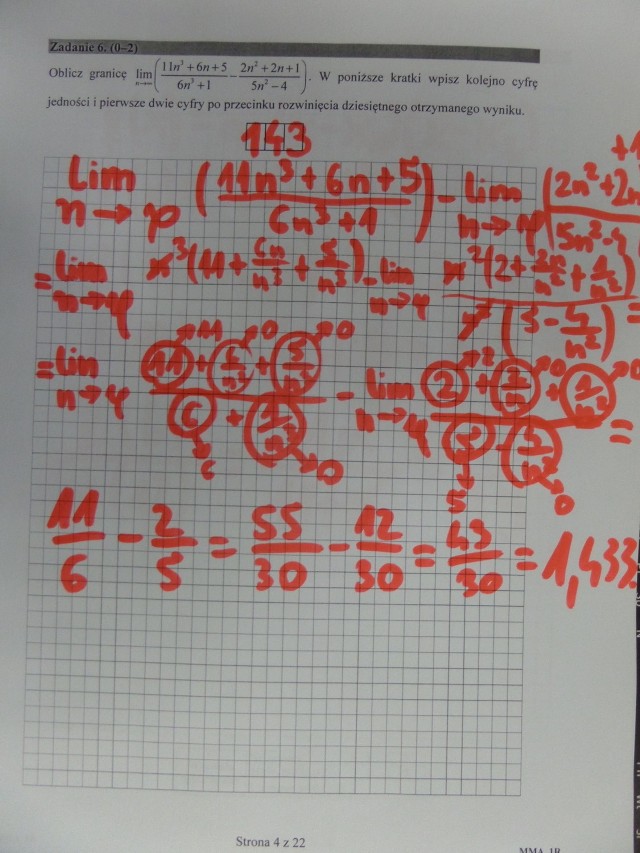 Zadanie 6. (0–2)
Oblicz granicę lim n→∞ ( (11n³+6n+5)/(6n³+1) − (2n²+2n+1)/(5n²−4) ). W poniższe kratki wpisz kolejno cyfrę
jedności i pierwsze dwie cyfry po przecinku rozwinięcia dziesiętnego otrzymanego wyniku.
143
Lim n→ρ ( (11n³+6n+5)/(6n³+1) ) - Lim n→φ (2n²+2n+1)/(5n²-4
= Lim n→φ n³(11 + 6n/n³ + 5/n³) - Lim n→φ n²(2 + 2n/n² + 1/n²) / n²(5 - 4/n²) =
= lim n→φ (11→11 + 6/n²→0 + 5/n³→0) / (6→6 + 1/n³→0) - lim n→φ (2→2 + 2/n→0 + 1/n²→0) / (5→5 - 4/n²→0) =
11/6 - 2/5 = 55/30 - 12/30 = 43/30 = 1,433
Strona 4 z 22
MMA_1R